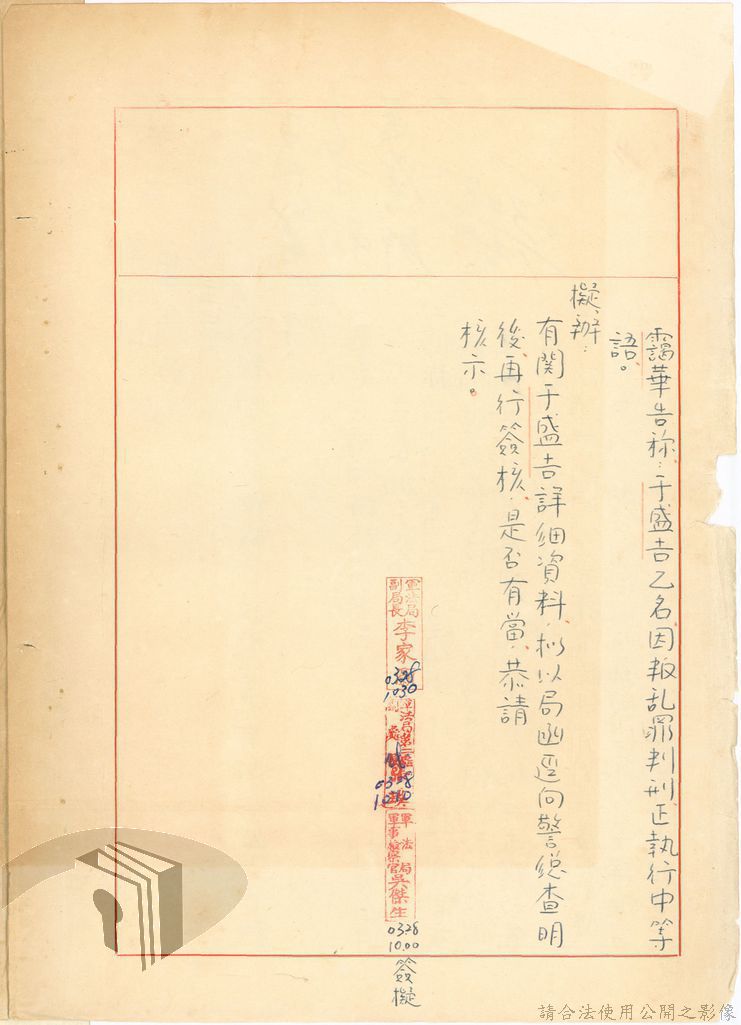 靄華告称：于盛吉乙名因叛乱罪判刑正執行中等
語。
擬辦：
有関于盛吉詳細資料，拟以局函逕向警總查明
後再行簽核，是否有當，恭請
核示。
軍法局
副局長 李家
0328
1030
軍法局第二
副處
0328
1010
軍法局
軍事檢察官 吳傑生
0328
10.00
簽擬
請合法使用公開之影像